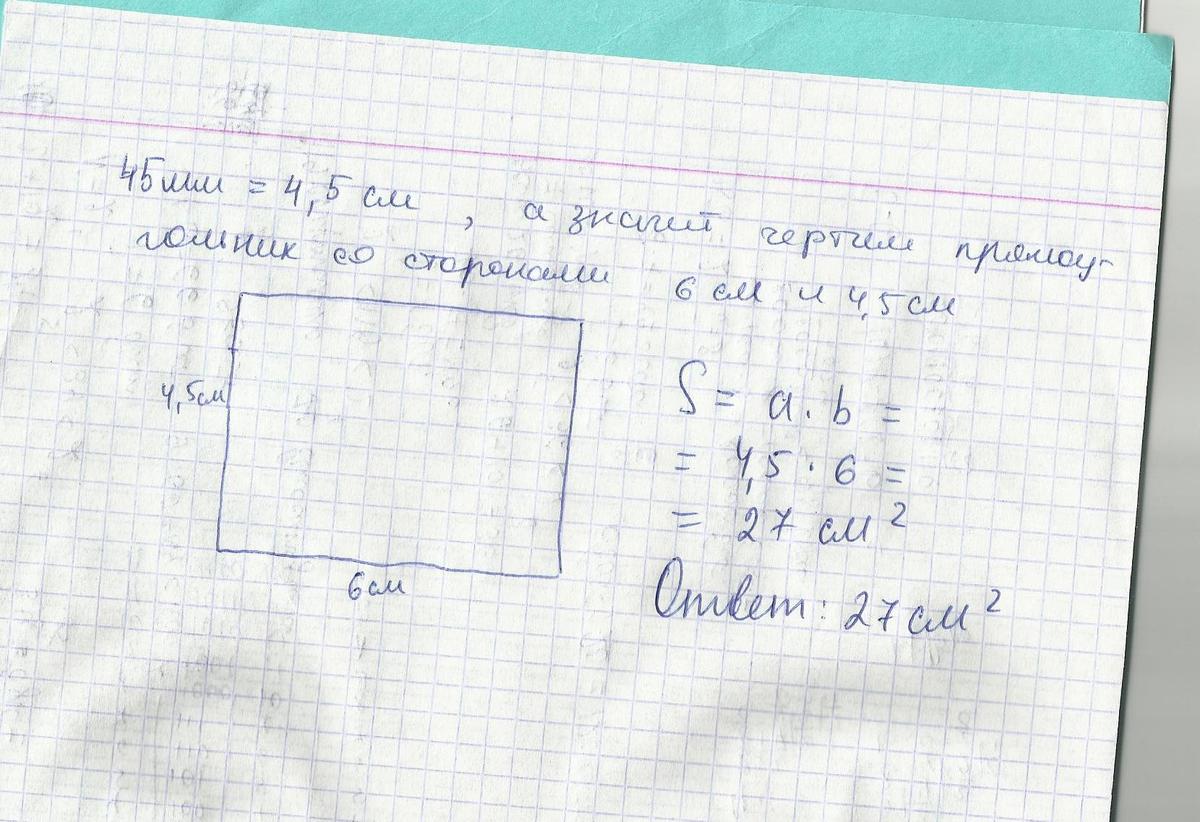 45мм = 4,5 см, а значит чертим прямоу-
гольник со сторонами 6 см и 4,5 см
4,5см
6см
S = a · b =
= 4,5 · 6 =
= 27 см²
Ответ: 27 см²